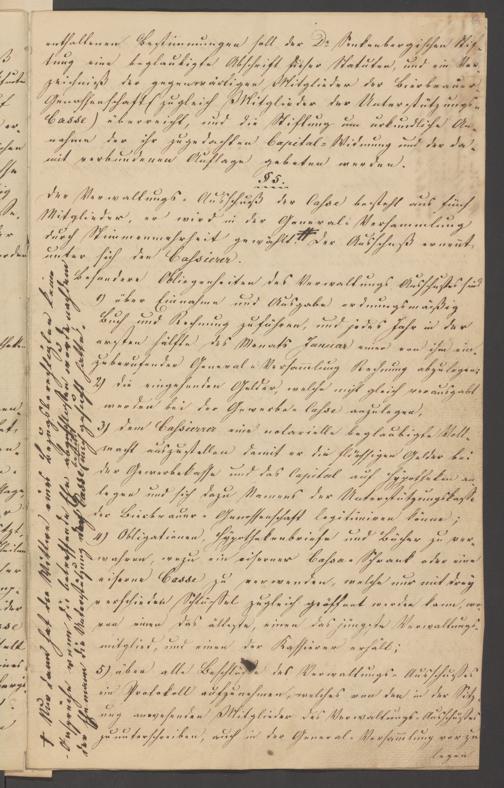 enthaltenen Bestimmungen soll der Dr. Senkenbergischen Stif-
tung eine beglaubigte Abschrift dieser Statuten, und ein Ver-
zeichniß der gegenwärtigen Mitglieder der Bierbrauer-
Genossenschaft (zugleich Mitglieder der Unterstützungs-
Casse) überreicht, und die Stiftung um urkundliche An-
nahme der ihr zugedachten Capital-Widmung und der da-
mit verbundenen Auflage gebeten werden.
§ 5.
Der Verwaltungs-Ausschuß der Casse besteht aus fünf
Mitglieder, er wird in der General-Versammlung
durch Stimmenmehrheit gewählt. Der Ausschuß ernennt
unter sich den Cassierer.
Besondere Obliegenheiten des Verwaltungs Ausschußes sind
1) über Einnahme und Ausgabe ordnungsmäßig
Buch und Rechnung zu führen, und jedes Jahr in der
ersten Hälfte des Monats Januar einer von ihm ein-
zuberufender General-Versammlung Rechnung abzulegen;
2) die eingehenden Gelder, welche nicht gleich verausgabt
werden bei der Gewerbe-Casse anzulegen,
3) dem Cassierer eine notarielle beglaubigte Voll-
macht auszustellen damit er die flüssigen Gelder bei
der Gewerbekasse und das Capital auf Hypotheken an-
legen und sich dazu Namens der Unterstützungskasse
der Bierbrauer-Genossenschaft legitimiren könne;
4) Obligationen, Hypothekenbriefe und Bücher zu ver-
wahren, wozu ein eiserner Cassa-Schrank oder eine
eiserne Casse zu verwenden, welche nur mit drey
verschieden Schlüssel zugleich geöffnet werden kann, wo-
von einen das älteste, einen das jüngste Verwaltungs-
mitglied, und einen der Kassierer erhält;
5) über alle Beschlüsse des Verwaltungs-Ausschußes
ein Protokoll aufzunehmen, welches von den in der Sitz-
ung anwesenden Mitglieder des Verwaltungs-Ausschußes
zu unterschreiben, auch in der General-Versammlung vorzu-
legen
Nur dann hat die Wittwe eines Bezugsberechtigten keine
Ansprüche wenn die betreffende Ehe abgeschlossen worde nachdem
der Ehemann die Unterstützung der Casse